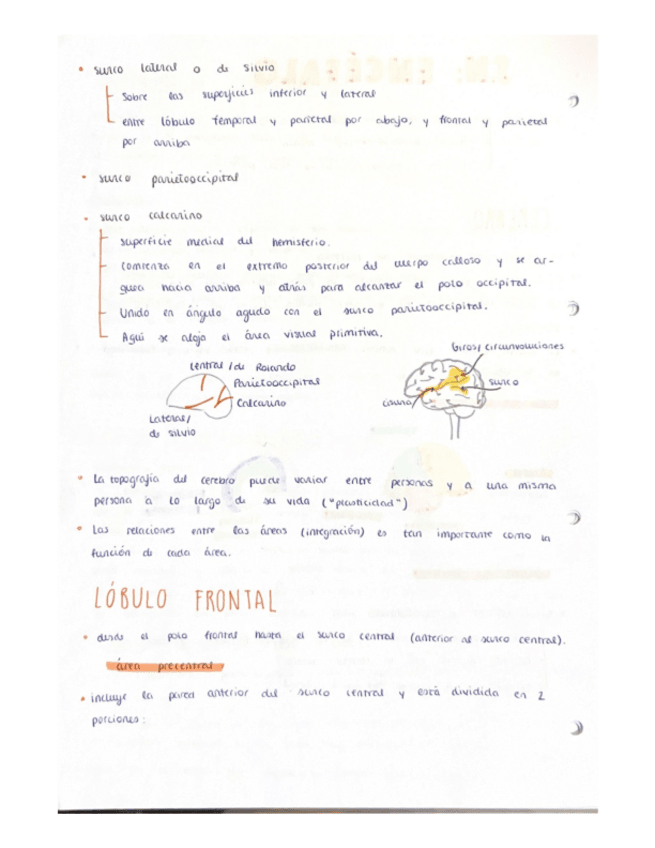 • surco lateral o de Silvio
Sobre las superficies inferior y lateral
entre lóbulo temporal y parietal por abajo, y frontal y parietal
por arriba
• surco parietooccipital
• surco calcarino
superficie medial del hemisferio.
Comienza en el extremo posterior del cuerpo calloso y se ar-
quea hacia arriba y atrás para alcanzar el polo occipital.
Unido en ángulo agudo con el surco parietooccipital.
Aquí se aloja el área visual primitiva.
Central / de Rolando
Parietooccipital
Calcarino
Lateral/
de silvio
Giros/ circunvoluciones
surco
cisura
• La topografía del cerebro puede variar entre personas y a una misma
persona a lo largo de su vida ("plasticidad")
• Las relaciones entre las áreas (integración) es tan importante como la
función de cada área.
LÓBULO FRONTAL
• desde el polo frontal hasta el surco central (anterior al surco central).
área precentral
• incluye la pared anterior del surco central y está dividida en 2
porciones: